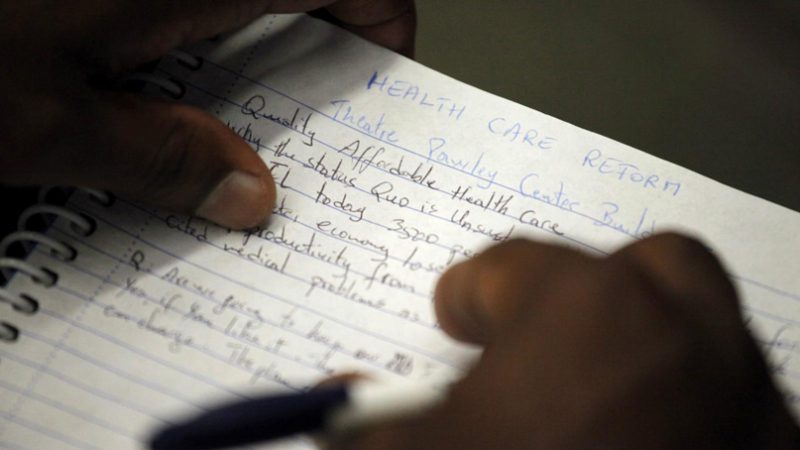 HEALTH CARE REFORM
Theatre Pawley Center Build
Quality Affordable Health Care
why the status Quo is Unsus
IL today 3500 pe
economy lose
productivity from
cited medical problems as
Q. Are going to keep our
You if you like it - the
can change. The